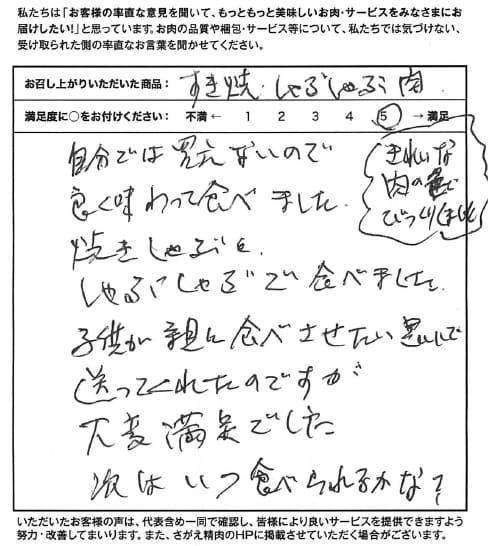 私たちは「お客様の率直な意見を聞いて、もっともっと美味しいお肉・サービスをみなさまにお
届けしたい!」と思っています。お肉の品質や梱包・サービス等について、私たちでは気づけない、
受け取られた側の率直なお言葉を聞かせてください。
お召し上がりいただいた商品: すき焼・しゃぶしゃぶ 肉
満足度に○をお付けください: 不満 ← 1 2 3 4 5 → 満足
きれいな
肉の色で
びっくりしました
自分では買えないので
良く味わって食べました。
焼きしゃぶと
しゃぶしゃぶで食べました。
子供が親に食べさせたい思いで
送ってくれたのですが
大変満足でした
次はいつ食べられるかな?
いただいたお客様の声は、代表含め一同で確認し、皆様により良いサービスを提供できますよう
努力・改善してまいります。また、さがえ精肉のHPに掲載させていただく場合がございます。